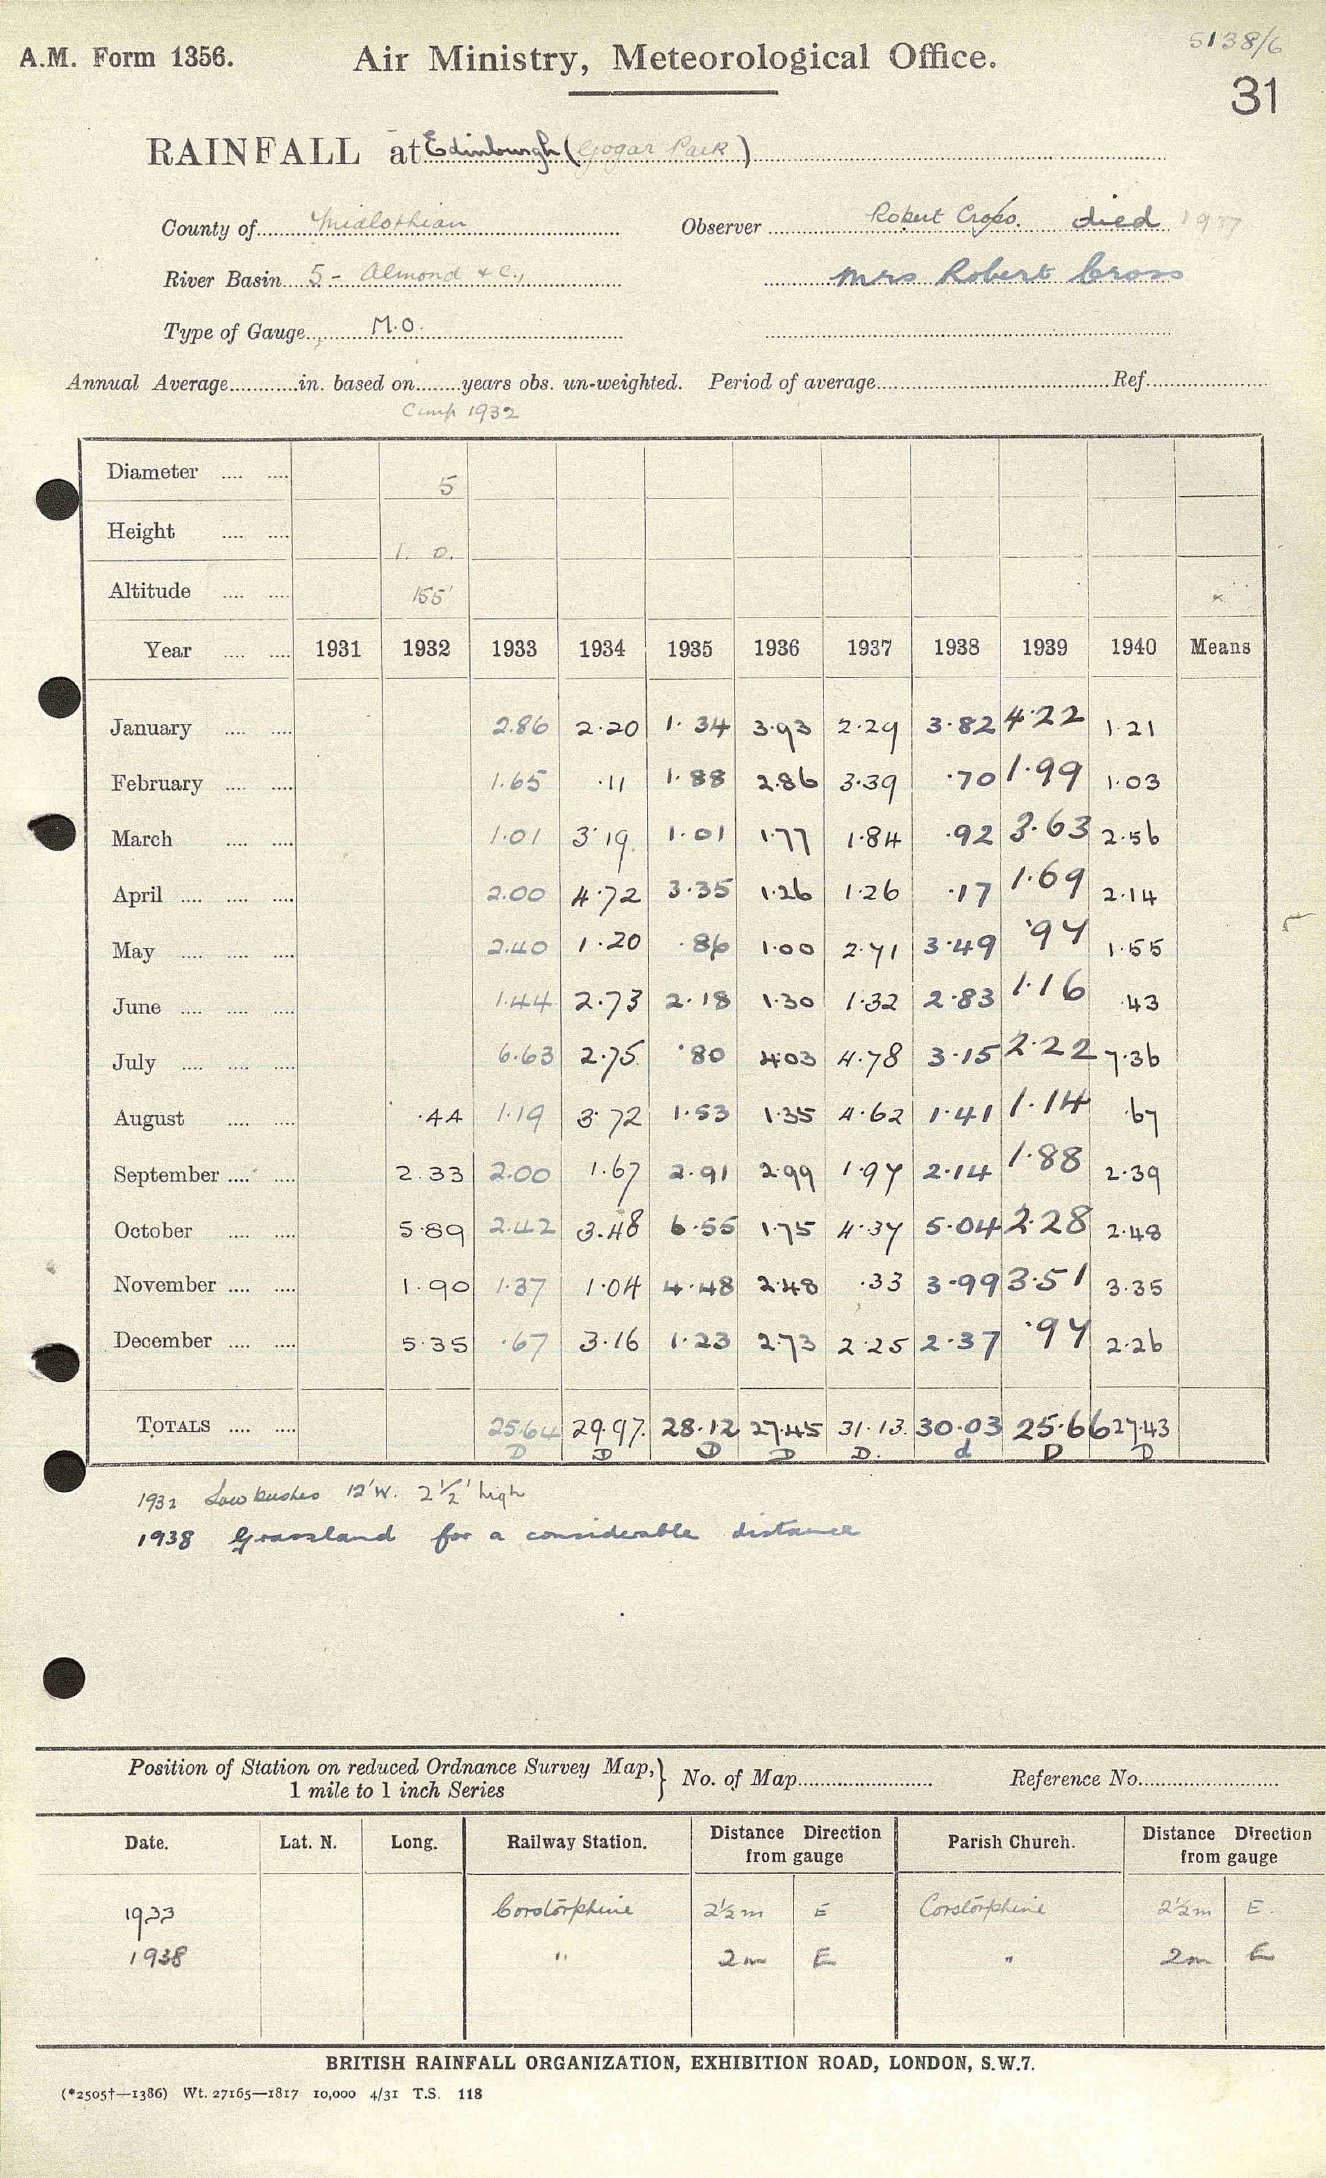 5138/6
A.M. Form 1356. Air Ministry, Meteorological Office.
31
RAINFALL at Edinburgh (Gogar Park)
County of Midlothian Observer Robert Cross. died 1937
River Basin 5 - Almond & C., Mrs Robert Cross
Type of Gauge M.O.
Annual Average in. based on years obs. un-weighted. Period of average Ref.
Comp 1932
Diameter 5
Height 1. 0.
Altitude 155'
Year 1931 1932 1933 1934 1935 1936 1937 1938 1939 1940 Means
January 2.86 2.20 1.34 3.93 2.29 3.82 4.22 1.21
February 1.65 .11 1.88 2.86 3.39 .70 1.99 1.03
March 1.01 3.19 1.01 1.77 1.84 .92 3.63 2.56
April 2.00 4.72 3.35 1.26 1.26 .17 1.69 2.14
May 2.40 1.20 .86 1.00 2.71 3.49 .97 1.55
June 1.44 2.73 2.18 1.30 1.32 2.83 1.16 .43
July 6.63 2.75 .80 4.03 4.78 3.15 2.22 7.36
August .44 1.19 3.72 1.53 1.35 4.62 1.41 1.14 .67
September 2.33 2.00 1.67 2.91 2.99 1.97 2.14 1.88 2.39
October 5.89 2.42 3.48 6.55 1.75 4.37 5.04 2.28 2.48
November 1.90 1.37 1.04 4.48 2.48 .33 3.99 3.51 3.35
December 5.35 .67 3.16 1.23 2.73 2.25 2.37 .97 2.26
TOTALS 25.64 29.97 28.12 27.45 31.13 30.03 25.66 27.43
D D D D D. d D D
1932 Low bushes 12' W. 2½' high
1938 Grassland for a considerable distance
Position of Station on reduced Ordnance Survey Map, } No. of Map Reference No.
1 mile to 1 inch Series
Date. Lat. N. Long. Railway Station. Distance Direction from gauge Parish Church. Distance Direction from gauge
1933 Corstorphine 2½m E Corstorphine 2½m E.
1938 " 2m E " 2m E
BRITISH RAINFALL ORGANIZATION, EXHIBITION ROAD, LONDON, S.W.7.
(*2505†—1386) Wt. 27165—1817 10,000 4/31 T.S. 118